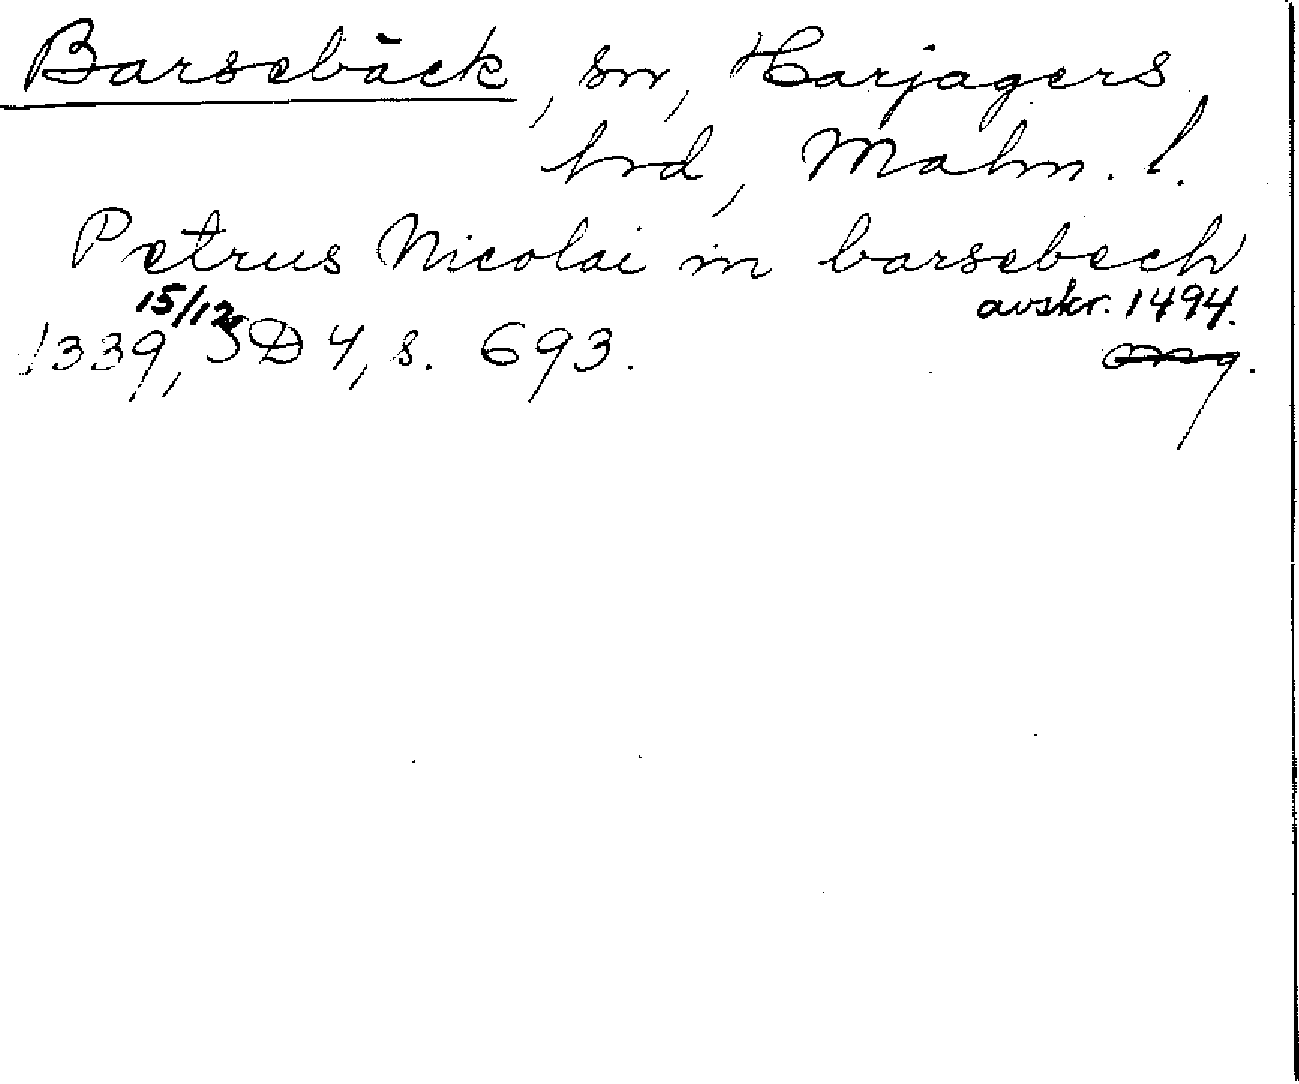 Barsebäck, sn, Harjagers
hrd, Malm. l.
Petrus Nicolai in barsebech
15/12 avskr. 1494.
1339, SD 4, s. 693. org.